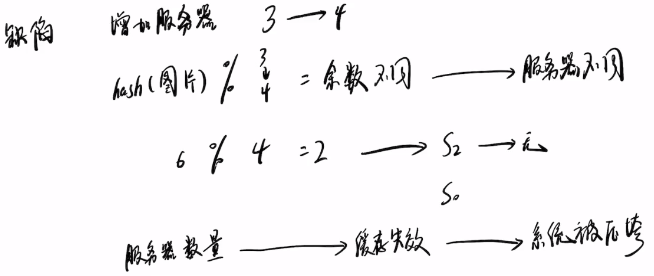 缺陷 增加服务器 3 → 4
hash(图片) % 3 ↓ 4 = 余数不同 → 服务器不同
6 % 4 = 2 → S2 → 无
S0
服务器数量 → 缓存失效 → 系统被压垮